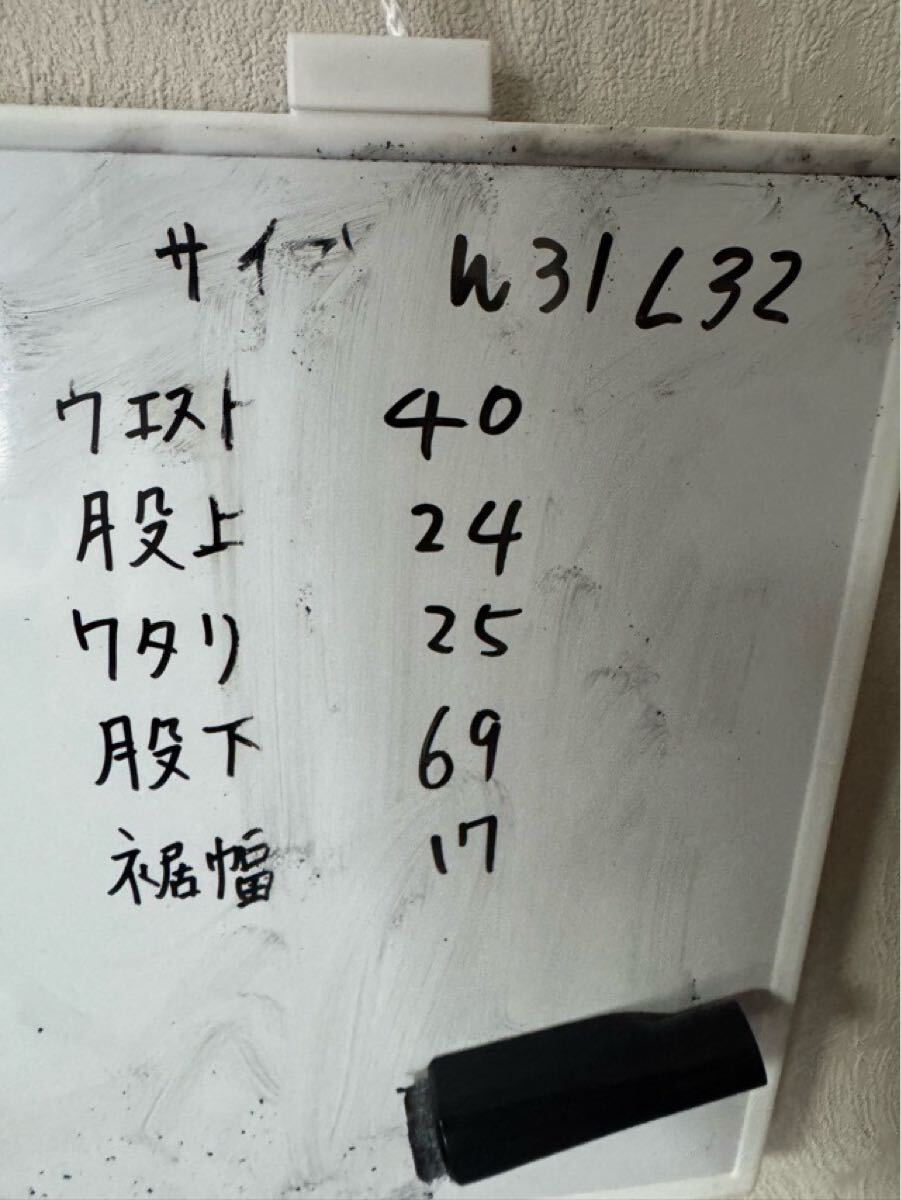 サイズ W31 L32
ウエスト 40
股上 24
ワタリ 25
股下 69
裾幅 17